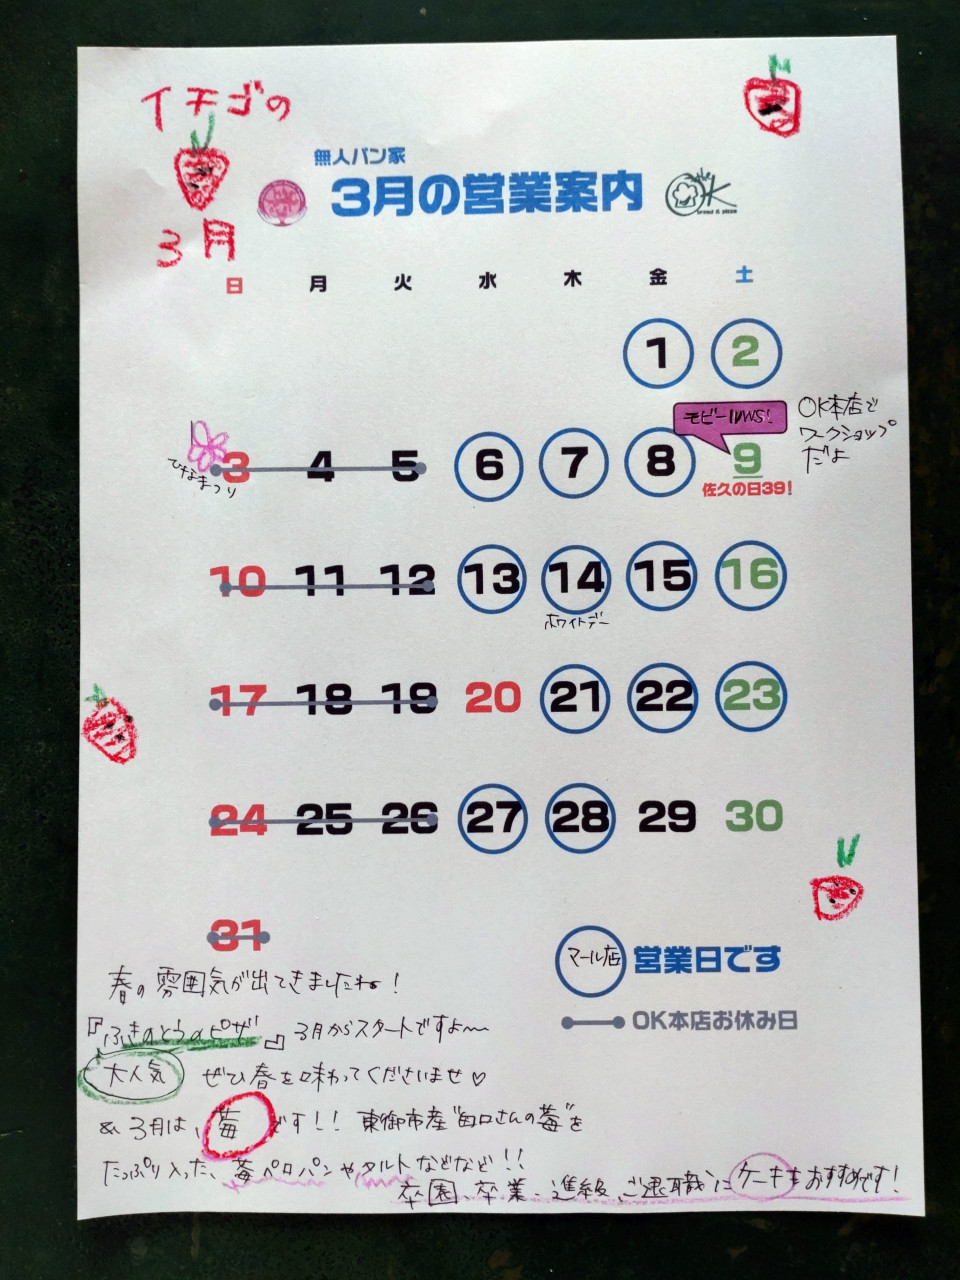 イチゴの
3月
無人パン家
3月の営業案内
OK
bread & pizza
日 月 火 水 木 金 土
1 2
モビールWS!
OK本店で
ワークショップ
だよ
3 4 5 6 7 8 9
ひなまつり
佐久の日39!
10 11 12 13 14 15 16
ホワイトデー
17 18 19 20 21 22 23
24 25 26 27 28 29 30
31
マール店 営業日です
OK本店お休み日
春の雰囲気が出てきましたね!
『ふきのとうのピザ』3月からスタートですよ〜
大人気 ぜひ春を味わってくださいませ♡
& 3月は、苺です!! 東御市産"田口さんの苺"を
たっぷり入った、苺ペロパンやタルトなどなど!!
卒園、卒業、進級、ご退職にケーキもおすすめです!